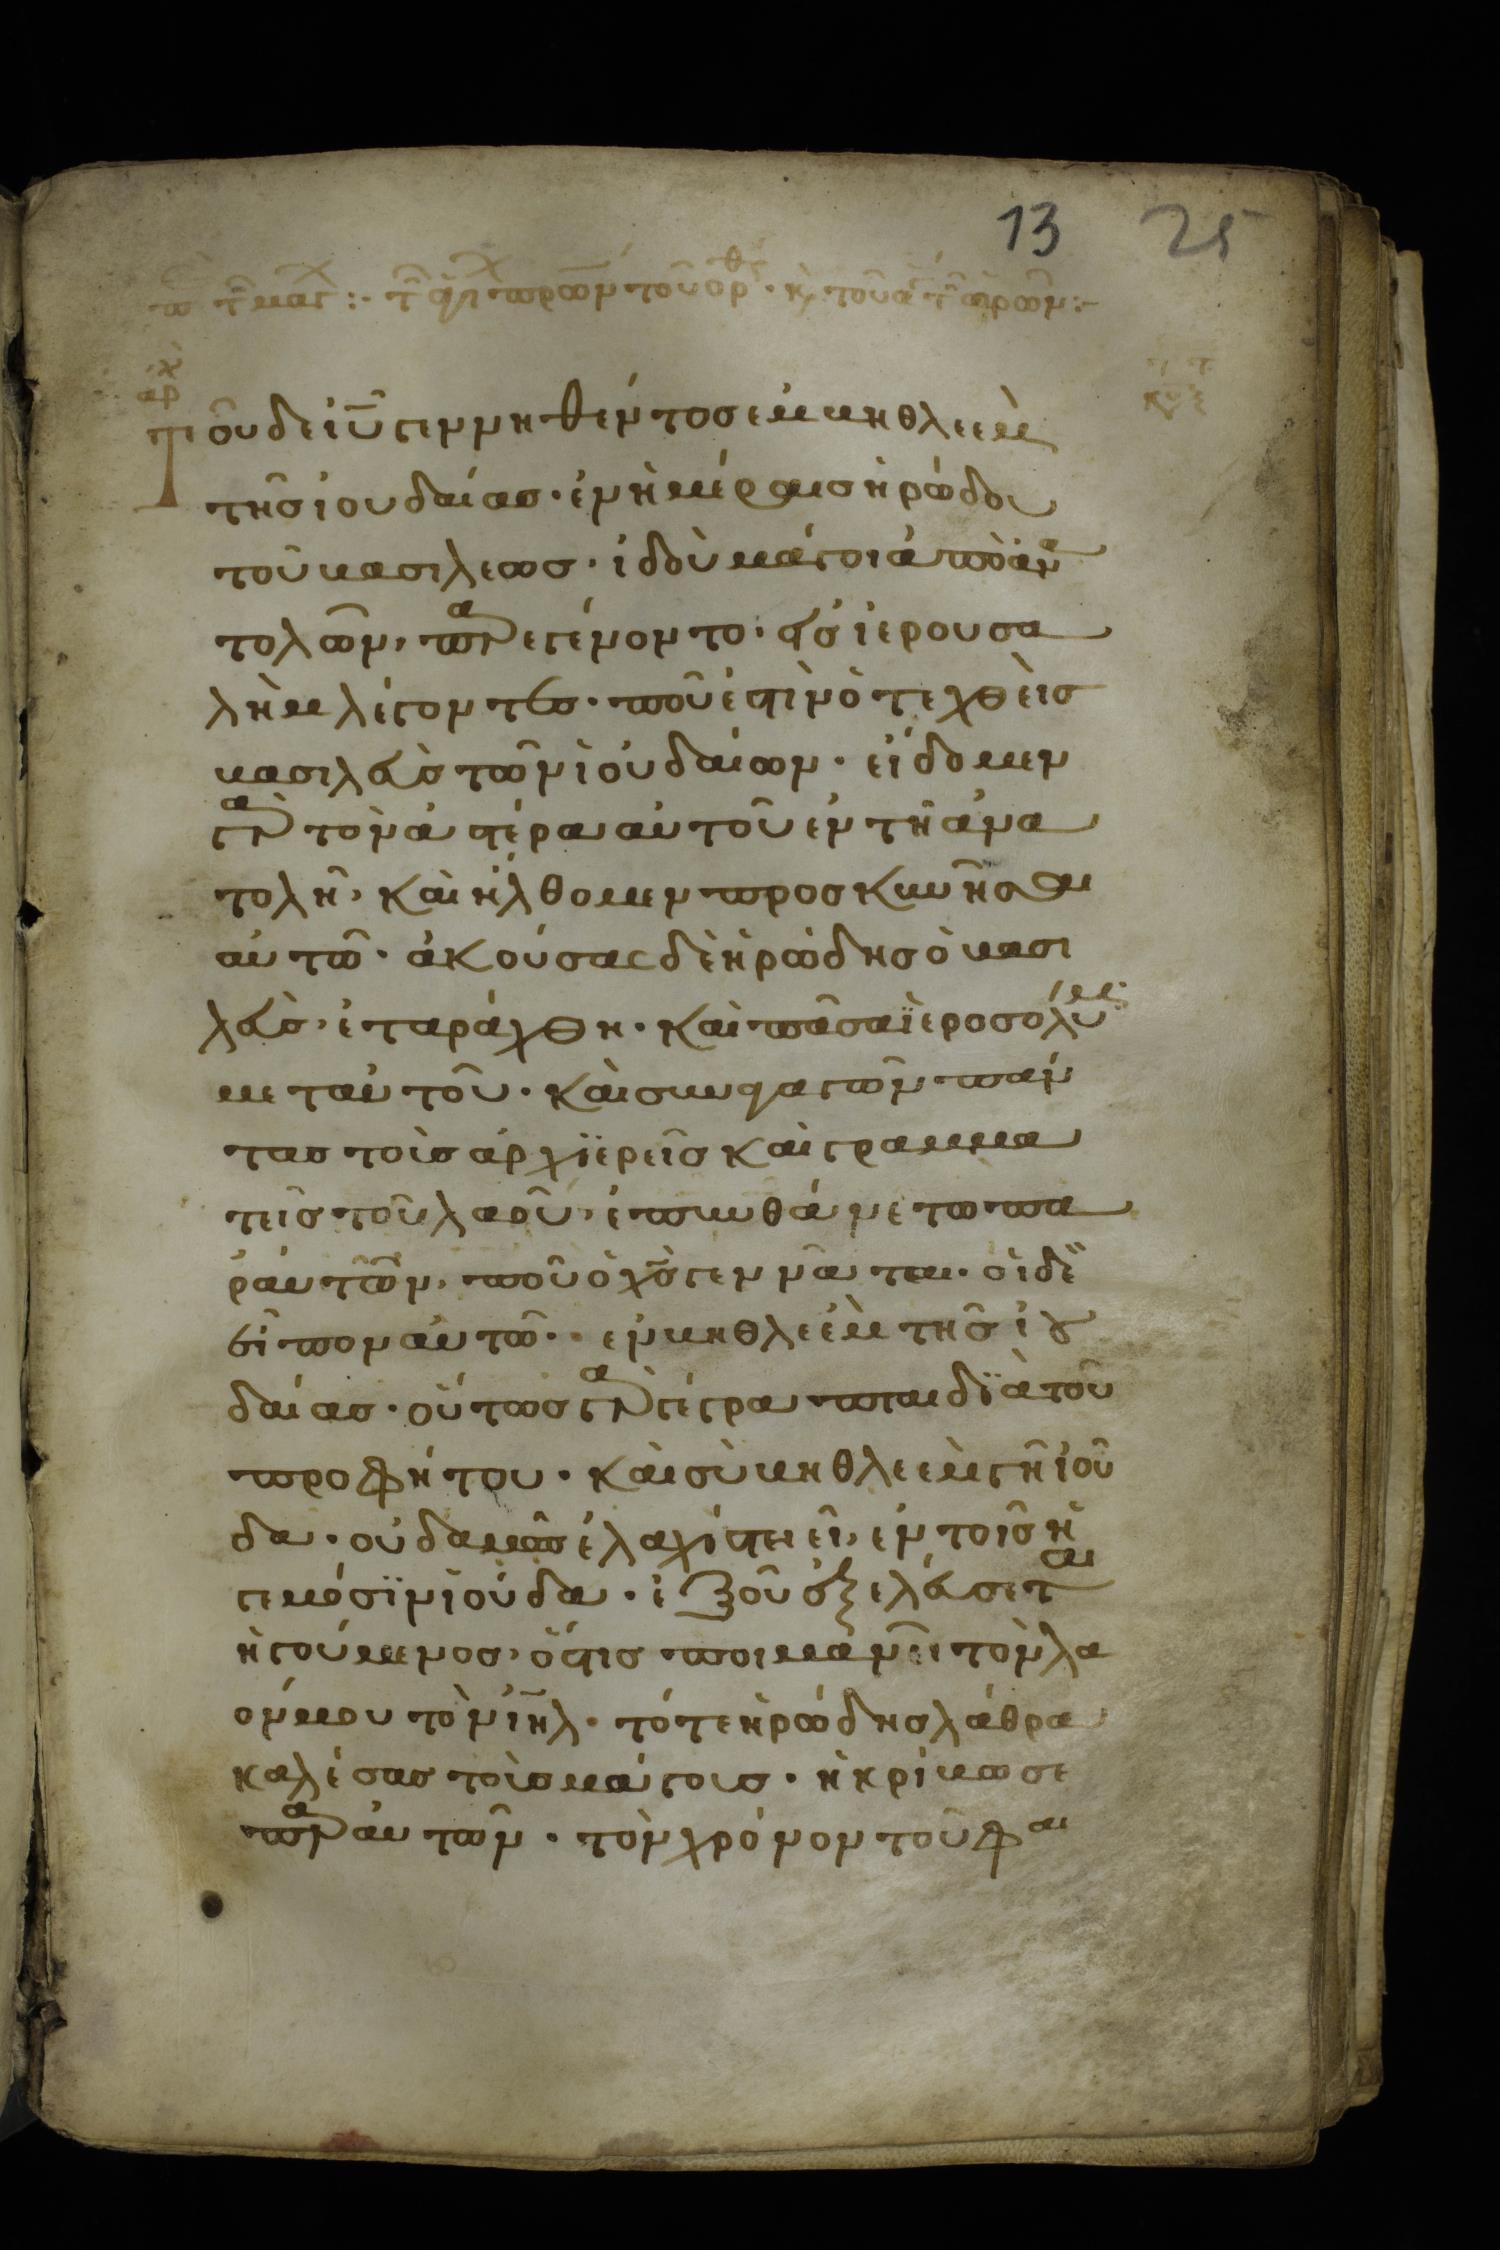 13 25
αρχ
Τοῦ δε ἰῦ γεννηθέντος ἐν βηθλεὲμ
τῆς ἰουδαίας· ἐν ἡμέραις ἡρώδου
τοῦ βασιλέως· ἰδοὺ μάγοι ἀπὸ ἀνα
τολῶν, παρεγένοντο· εἰς ἱερουσα
λὴμ λέγοντες· ποῦ ἐστὶν ὁ τεχθεὶς
βασιλεὺς τῶν ἰουδαίων· εἴδομεν
γὰρ τὸν ἀστέρα αὐτοῦ ἐν τῆ ἀνα
τολῆ, καὶ ἤλθομεν προσκυνῆσαι
αὐτῶ· ἀκούσας δὲ ἡρώδης ὁ βασι
λεὺς, ἐταράχθη· καὶ πᾶσα ϊεροσόλυμ
μεταυτοῦ· καὶ συναγαγὼν πάν
τας τοὺς ἀρχϊερεῖς καὶ γραμμα
τεῖς τοῦ λαοῦ, ἐπυνθάνετο πα
ραυτῶν, ποῦ ὁ χς γεννᾶται· οἱ δὲ
εἶπον αὐτῶ· ἐν βηθλεὲμ τῆς ἰου
δαίας· οὕτως γὰρ γέγραπται δϊὰ τοῦ
προφήτου· καὶ σὺ βηθλεὲμ γῆ ἰού
δα· οὐδαμῶς ἐλαχίστη εἶ, ἐν τοῖς ἡ
γεμόσϊν ἰούδα· ἐκ σοῦ ἐξελεύσεται
ἡγούμενος, ὅστις ποιμανεῖ τὸν λα
όν μου τὸν ἰηλ· τότε ἡρώδης λάθρα
καλέσας τοὺς μάγους· ἠκρίβωσε
παρ αὐτῶν· τὸν χρόνον τοῦ φαι